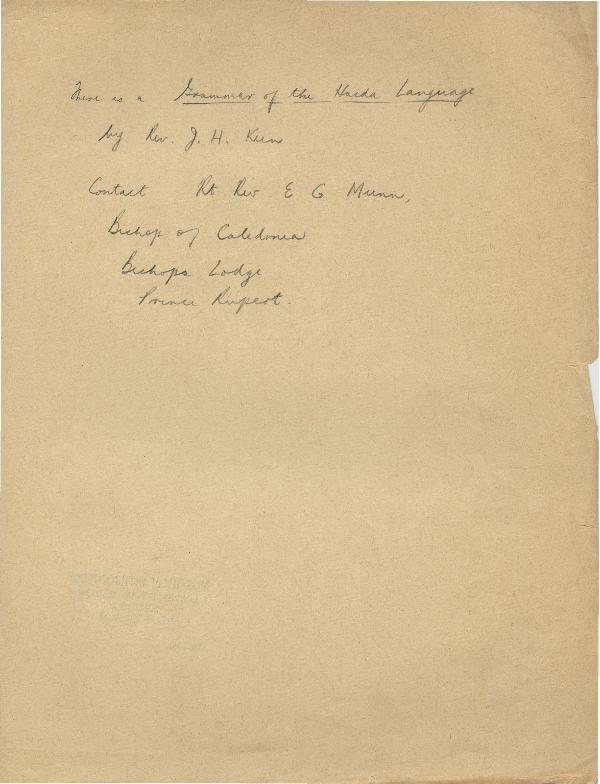 There is a Grammar of the Haida Language
by Rev. J. H. Keen
Contact Rt Rev E G Munn,
Bishop of Caledonia
Bishops Lodge
Prince Rupert.